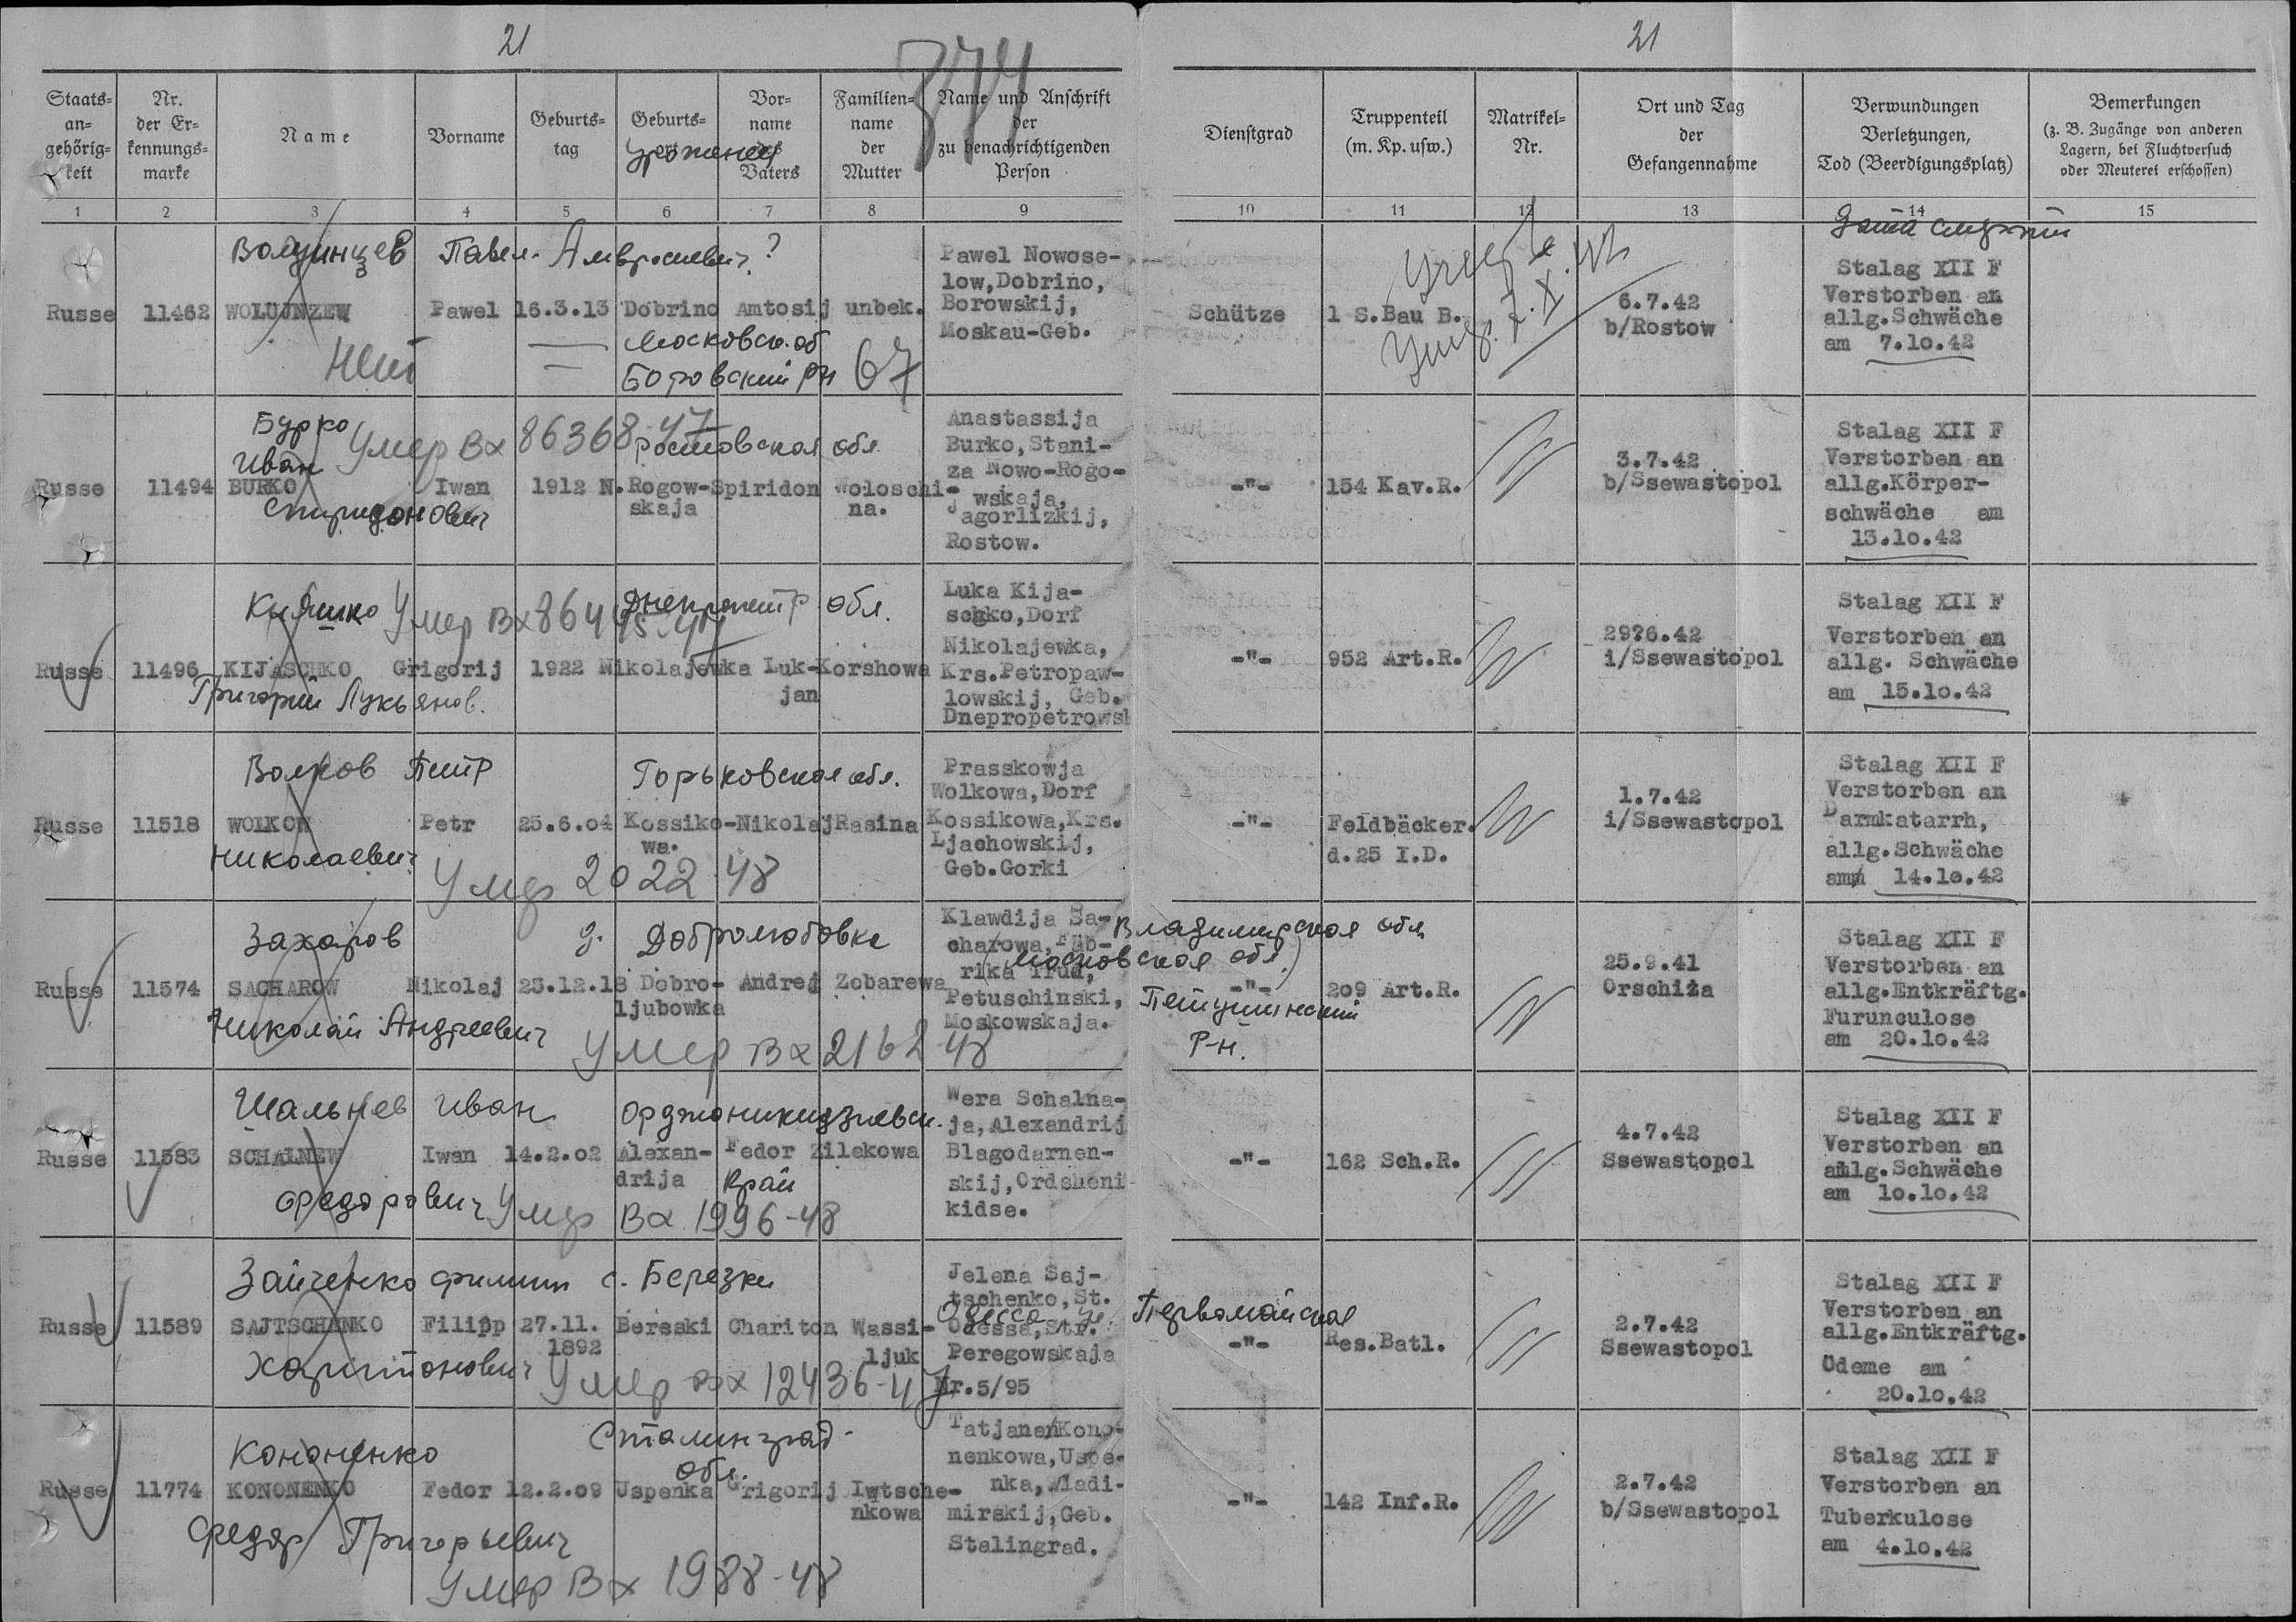 21
21
374
Staats-
an-
gehörig-
keit
Nr.
der Er-
kennungs-
marke
Name
Vorname
Geburts-
tag
Geburts-
ort
уроженец
Vor-
name
des
Vaters
Familien-
name
der
Mutter
Name und Anschrift
der
zu benachrichtigenden
Person
Dienstgrad
Truppenteil
(m. Kp. usw.)
Matrikel-
Nr.
Ort und Tag
der
Gefangennahme
Verwundungen
Verletzungen,
Tod (Beerdigungsplatz)
Bemerkungen
(z. B. Zugänge von anderen
Lagern, bei Fluchtversuch
oder Meuterei erschossen)
1 2 3 4 5 6 7 8 9 10 11 12 13 14 15
дата смерти
Волынцев Павел Амвросиевич ?
Russe 11462 WOLUJNZEW Pawel 16.3.13 Dobrino Amtosij unbek.
Московск. об
Боровский рн 67
Нет
Pawel Nowose-
low,Dobrino,
Borowskij,
Moskau-Geb.
Schütze 1 S.Bau B.
7.X.42
6.7.42
b/Rostow
Stalag XII F
Verstorben an
allg.Schwäche
am 7.10.42
Бурко
Иван
Умер Вх 86368-47
Ростовская обл
Russe 11494 BURKO Iwan 1912 N.Rogow-
skaja
Spiridon Woloschi-
na.
Спиридонович
Anastassija
Burko,Stani-
za Nowo-Rogo-
wskaja,
agorlizkij,
Rostow.
-"- 154 Kav.R.
3.7.42
b/Ssewastopol
Stalag XII F
Verstorben an
allg.Körper-
schwäche am
13.10.42
Кияшко Умер Вх 86445-47
Днепропетр обл.
Russe 11496 KIJASCHKO Grigorij 1922 Nikolajewka Luk-
jan
Korshowa
Григорий Лукьянов.
Luka Kija-
schko,Dorf
Nikolajewka,
Krs.Petropaw-
lowskij, Geb.
Dnepropetrowsk
-"- 952 Art.R.
29?6.42
i/Ssewastopol
Stalag XII F
Verstorben an
allg. Schwäche
am 15.10.42
Волков Петр Горьковская обл.
Russe 11518 WOLKOW Petr 25.6.04 Kossiko-
wa.
Nikolaj Rasina
Николаевич
Умер 2022-48
Prasskowja
Wolkowa,Dorf
Kossikowa,Krs.
Ljachowskij,
Geb.Gorki
-"- Feldbäcker.
d.25 I.D.
1.7.42
i/Ssewastopol
Stalag XII F
Verstorben an
Darmkatarrh,
allg.Schwäche
am 14.10.42
Захаров д. Добролюбовка
Russe 11574 SACHAROW Nikolaj 25.12.18 Dobro-
ljubowka
Andrej Zobarewa
Николай Андреевич
Умер Вх 2162 48
Klawdija Sa-
charowa,Fab-
rika Trud,
Petuschinski,
Moskowskaja.
Владимирская обл
(Московская обл.)
Петушинский
Р-н.
-"- 209 Art.R.
25.9.41
Orschiza
Stalag XII F
Verstorben an
allg.Entkräftg.
Furunculose
am 20.10.42
Шальнев Иван Орджоникидзевск.
край
Russe 11583 SCHALNEW Iwan 14.2.02 Alexan-
drija
Fedor Zilekowa
Федорович Умер Вх 1996-48
Wera Schalna-
ja,Alexandrij
Blagodarnen-
skij,Ordsheni-
kidse.
-"- 162 Sch.R.
4.7.42
Ssewastopol
Stalag XII F
Verstorben an
allg.Schwäche
am 10.10.42
Зайченко Филипп с. Березки
Russe 11589 SAJTSCHENKO Filipp 27.11.
1892
Bereski Chariton Wassi-
ljuk
Харитонович Умер Вх 12436-47
Jelena Saj-
tschenko,St.
Odessa,Str.
Peregowskaja
Nr.5/95
Одесса ул. Первомайская
-"- Res.Batl.
2.7.42
Ssewastopol
Stalag XII F
Verstorben an
allg.Entkräftg.
Ödeme am
20.10.42
Кононенко Сталинград-
обл.
Russe 11774 KONONENKO Fedor 12.2.09 Uspenka Grigorij Iwtsche-
nkowa
Федор Григорьевич
Умер Вх 1988-48
Tatjanen Kono-
nenkowa,Uspe-
nka,Wladi-
mirskij,Geb.
Stalingrad.
-"- 142 Inf.R.
2.7.42
b/Ssewastopol
Stalag XII F
Verstorben an
Tuberkulose
am 4.10.42